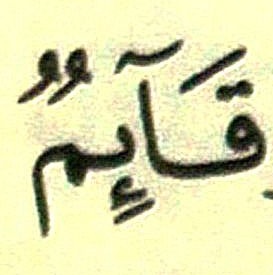 قَآئِمٌ